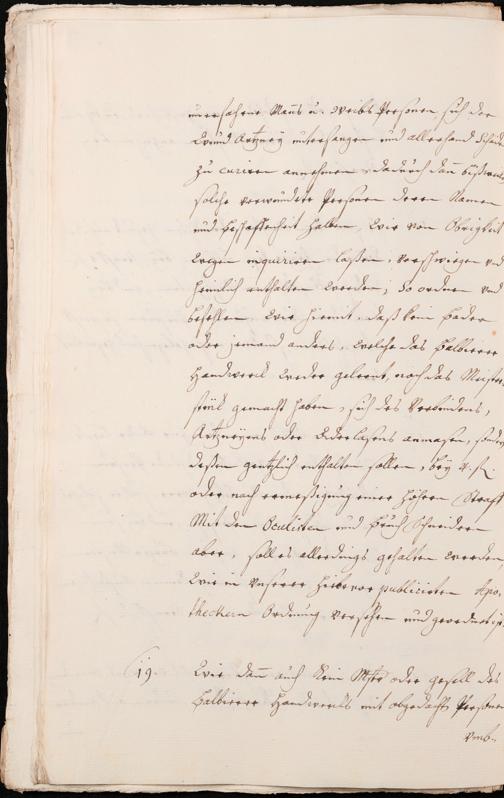 unerfahrne Mañs u. Weibs Persohnen, sich der
Wund Artzney unterfangen und allerhand Schäden
zu curiren annehmen, dadurch dañ bißweilen
solche verwundete Persohnen deren Namen
und Beschaffenheit halben, Wir von Obrigkeit
wegen inquiriren laßen, verschwiegen und
heimlich enthalten werden; So ordnen und
befehlen Wir hiemit, daß kein Bader
oder jemand anders, welche das Balbierer
Handwerck weder gelernt, noch das Meister
stück gemacht haben, sich des Verbindens,
Artzneyens oder Aderlaßens anmasen, sondern
deßen gentzlich enthalten sollen, bey 4. fl.
oder nach ermeßigung einer höhern Straff
Mit den Oculisten und Bruch Schneidern
aber, soll es allerdings gehalten werden,
Wie in Unserer hiebevor publicirten Apo-
theckern Ordnung versehen und geordnet ist.
19. Wie dañ auch kein Mstr oder gesell des
Balbierer Handwercks mit obgedacht Persohnen
Verb-